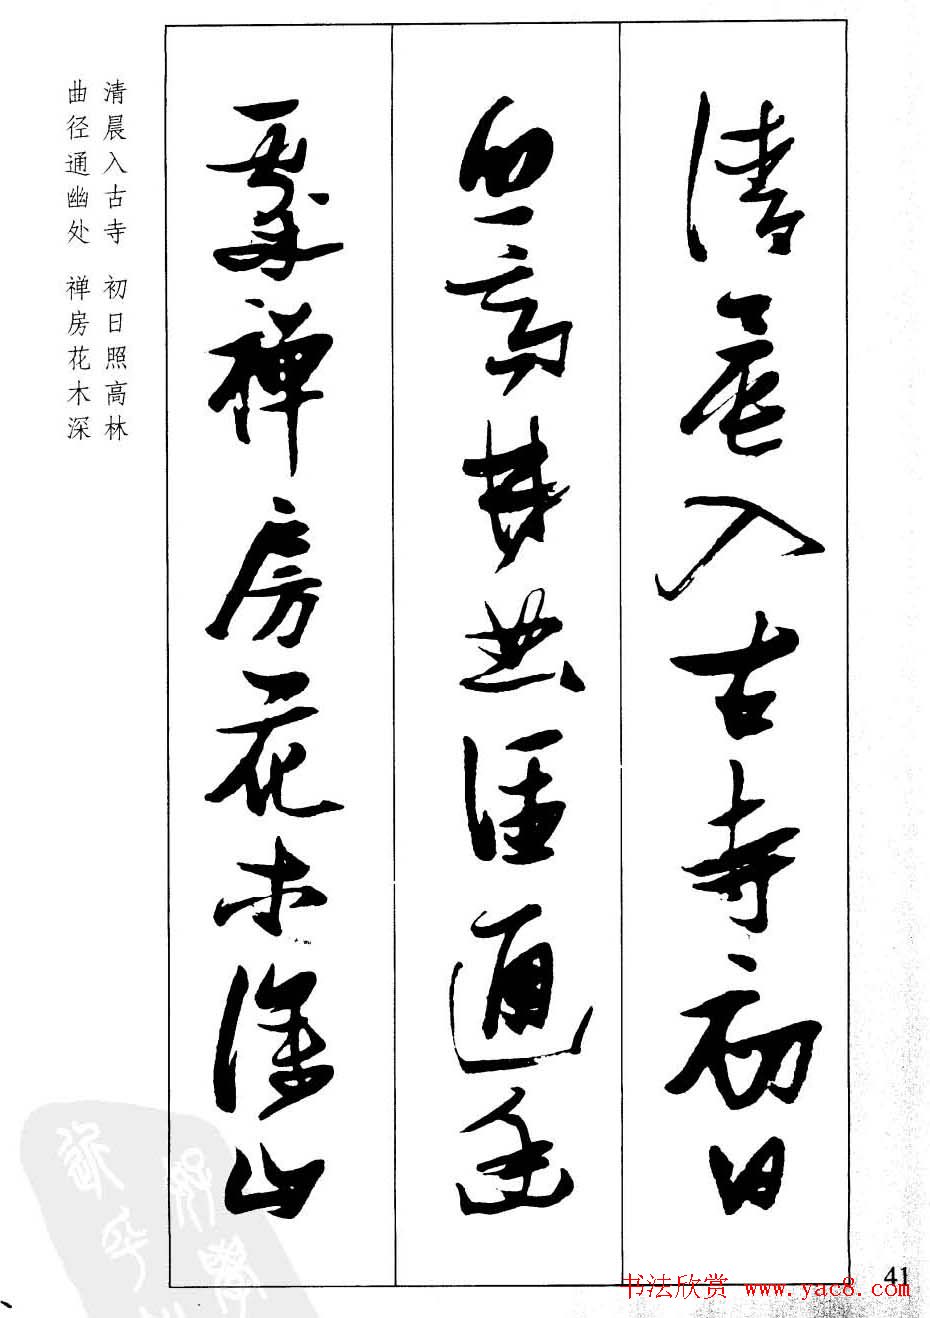 清晨入古寺初日
照高林曲徑通幽
處禪房花木深山
清晨入古寺 初日照高林
曲径通幽处 禅房花木深
41
书法欣赏 www.yac8.com